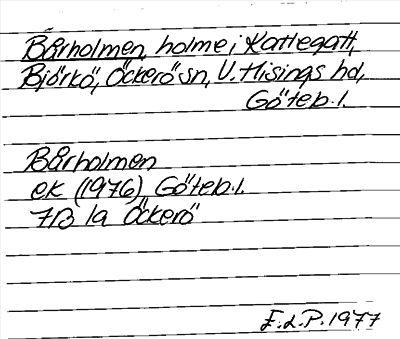 Bårholmen, holme i Kattegatt,
Björkö, Öckerö sn, V. Hisings hd,
Göteb. l.
Bårholmen
ek (1976), Göteb. l.
7B 1a Öckerö
E.L.P. 1977